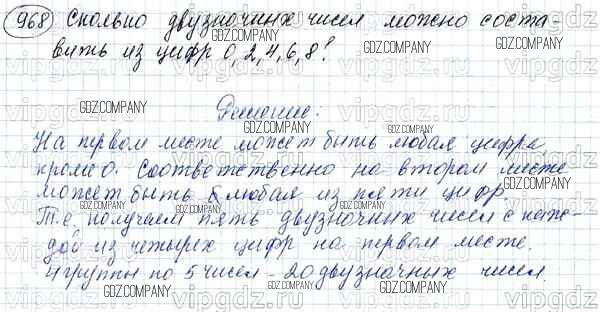 968 Сколько двузначных чисел можно соста-
вить из цифр 0, 2, 4, 6, 8?
Решение:
На первом месте может быть любая цифра
кроме 0. Соответственно на втором месте
может быть любая из пяти цифр.
Т.е. получаем пять двузначных чисел с каж-
дой из четырех цифр на первом месте.
4 группы по 5 чисел - 20 двузначных чисел.